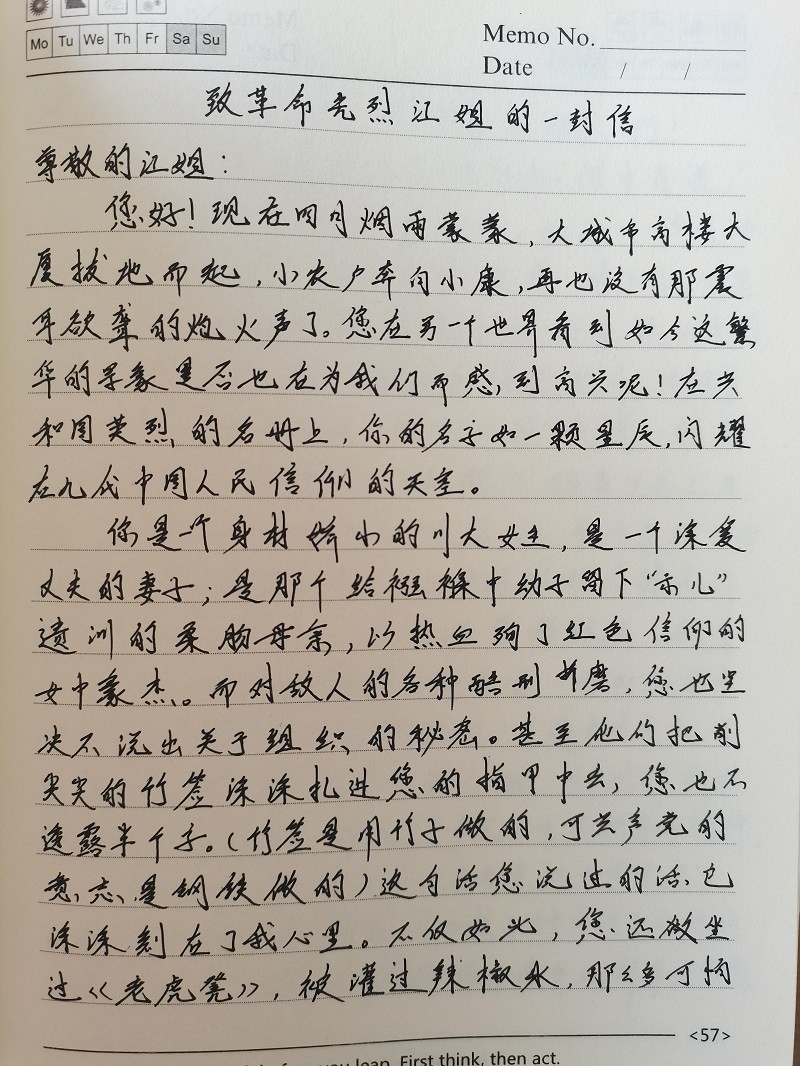 Mo Tu We Th Fr Sa Su
Memo No.
Date / /
致革命先烈江姐的一封信
尊敬的江姐:
您好!现在四月烟雨蒙蒙,大城市高楼大
厦拔地而起,小农户奔向小康,再也没有那震
耳欲聋的炮火声了。您在另一个世界看到如今这繁
华的景象是否也在为我们而感到高兴呢!在共
和国英烈的名册上,你的名字如一颗星辰,闪耀
在九代中国人民信仰的天空。
你是一个身材娇小的川大女生,是一个深爱
丈夫的妻子;是那个给襁褓中幼子留下“示儿”
遗训的柔肠母亲,以热血殉了红色信仰的
女中豪杰。而对敌人的各种酷刑折磨,您也坚
决不说出关于组织的秘密。甚至他们把削
尖尖的竹签深深扎进您的指甲中去,您也不
透露半个字。(竹签是用竹子做的,可共产党的
意志是钢铁做的)这句话您说过的话,也
深深刻在了我心里。不仅如此,您还被坐
过《老虎凳》,被灌过辣椒水,那么多可怕
<57>
you leap. First think, then act.